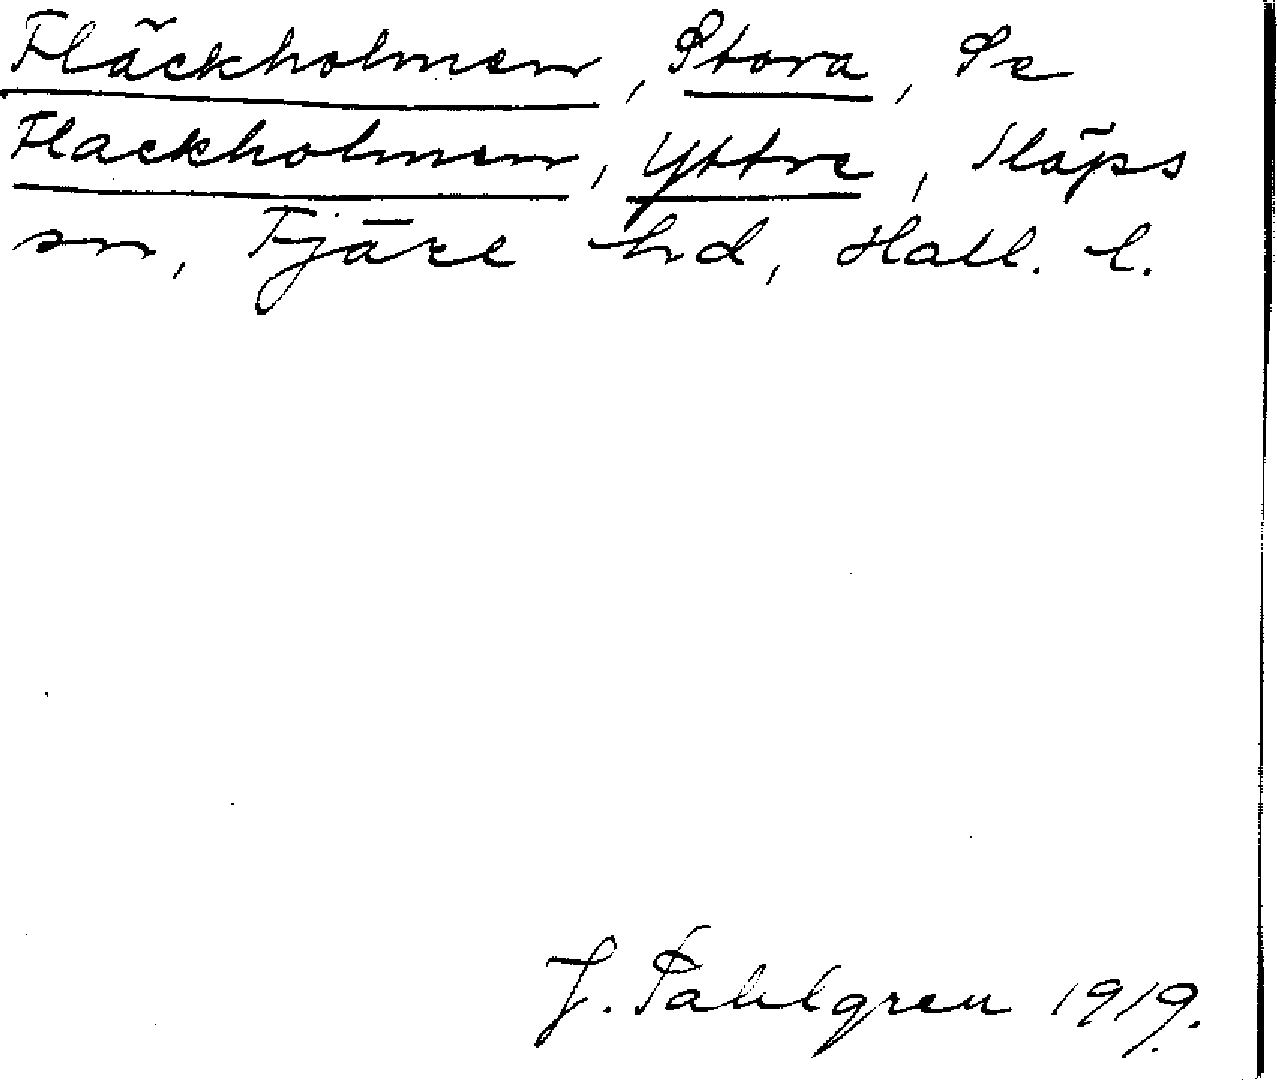 Fläckholmen, Stora, Se
Flackholmen, Yttre, Släps
sn, Fjäre hd, Hall. l.
J. Sahlgren 1919.